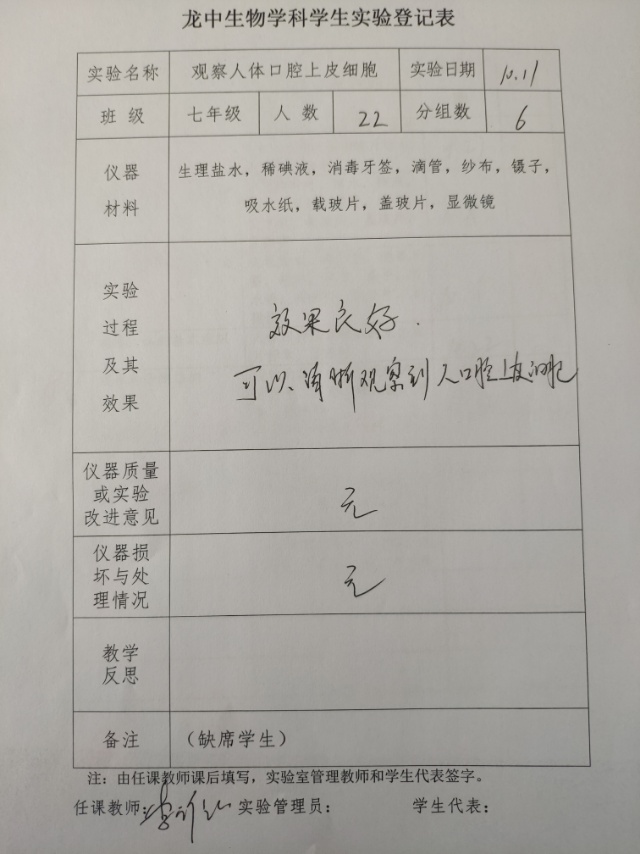 龙中生物学科学生实验登记表
实验名称 观察人体口腔上皮细胞 实验日期 10.11
班 级 七年级 人 数 22 分组数 6
仪器
材料
生理盐水，稀碘液，消毒牙签，滴管，纱布，镊子，
吸水纸，载玻片，盖玻片，显微镜
实验
过程
及其
效果
效果良好.
可以清晰观察到人口腔上皮细胞
仪器质量
或实验
改进意见
无
仪器损
坏与处
理情况
无
教学
反思
备注 （缺席学生）
注：由任课教师课后填写，实验室管理教师和学生代表签字。
任课教师： 实验管理员： 学生代表：